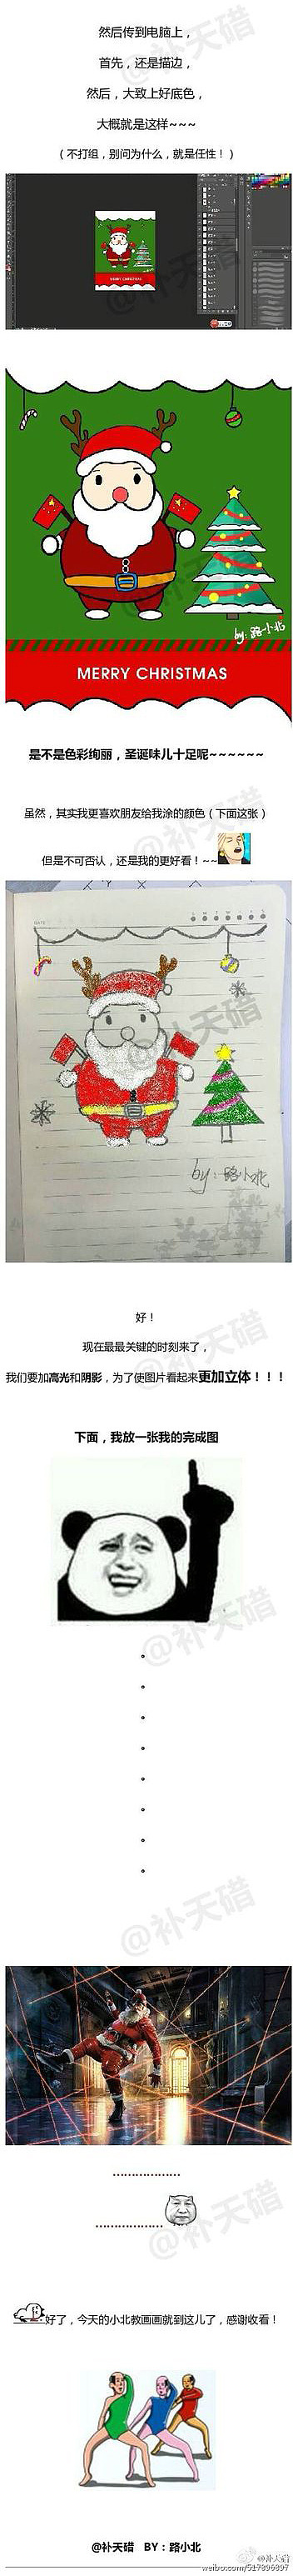 然后传到电脑上，
首先，还是描边，
然后，大致上好底色，
大概就是这样~~~
（不打组，别问为什么，就是任性！）
@补天碏
MERRY CHRISTMAS
by:路小北
MERRY CHRISTMAS
是不是色彩绚丽，圣诞味儿十足呢~~~~~~
@补天碏
虽然，其实我更喜欢朋友给我涂的颜色（下面这张）
但是不可否认，还是我的更好看！~~
DATE
S M T W T F S
@补天碏
by:路小北
好！
@补天碏
现在最最关键的时刻来了，
我们要加高光和阴影，为了使图片看起来更加立体！！！
下面，我放一张我的完成图
@补天碏
。
。
。
。
。
。
。
。
@补天碏
………………
………………
@补天碏
好了，今天的小北教画画就到这儿了，感谢收看！
@补天碏 BY：路小北
@补天碏
weibo.com/517896897